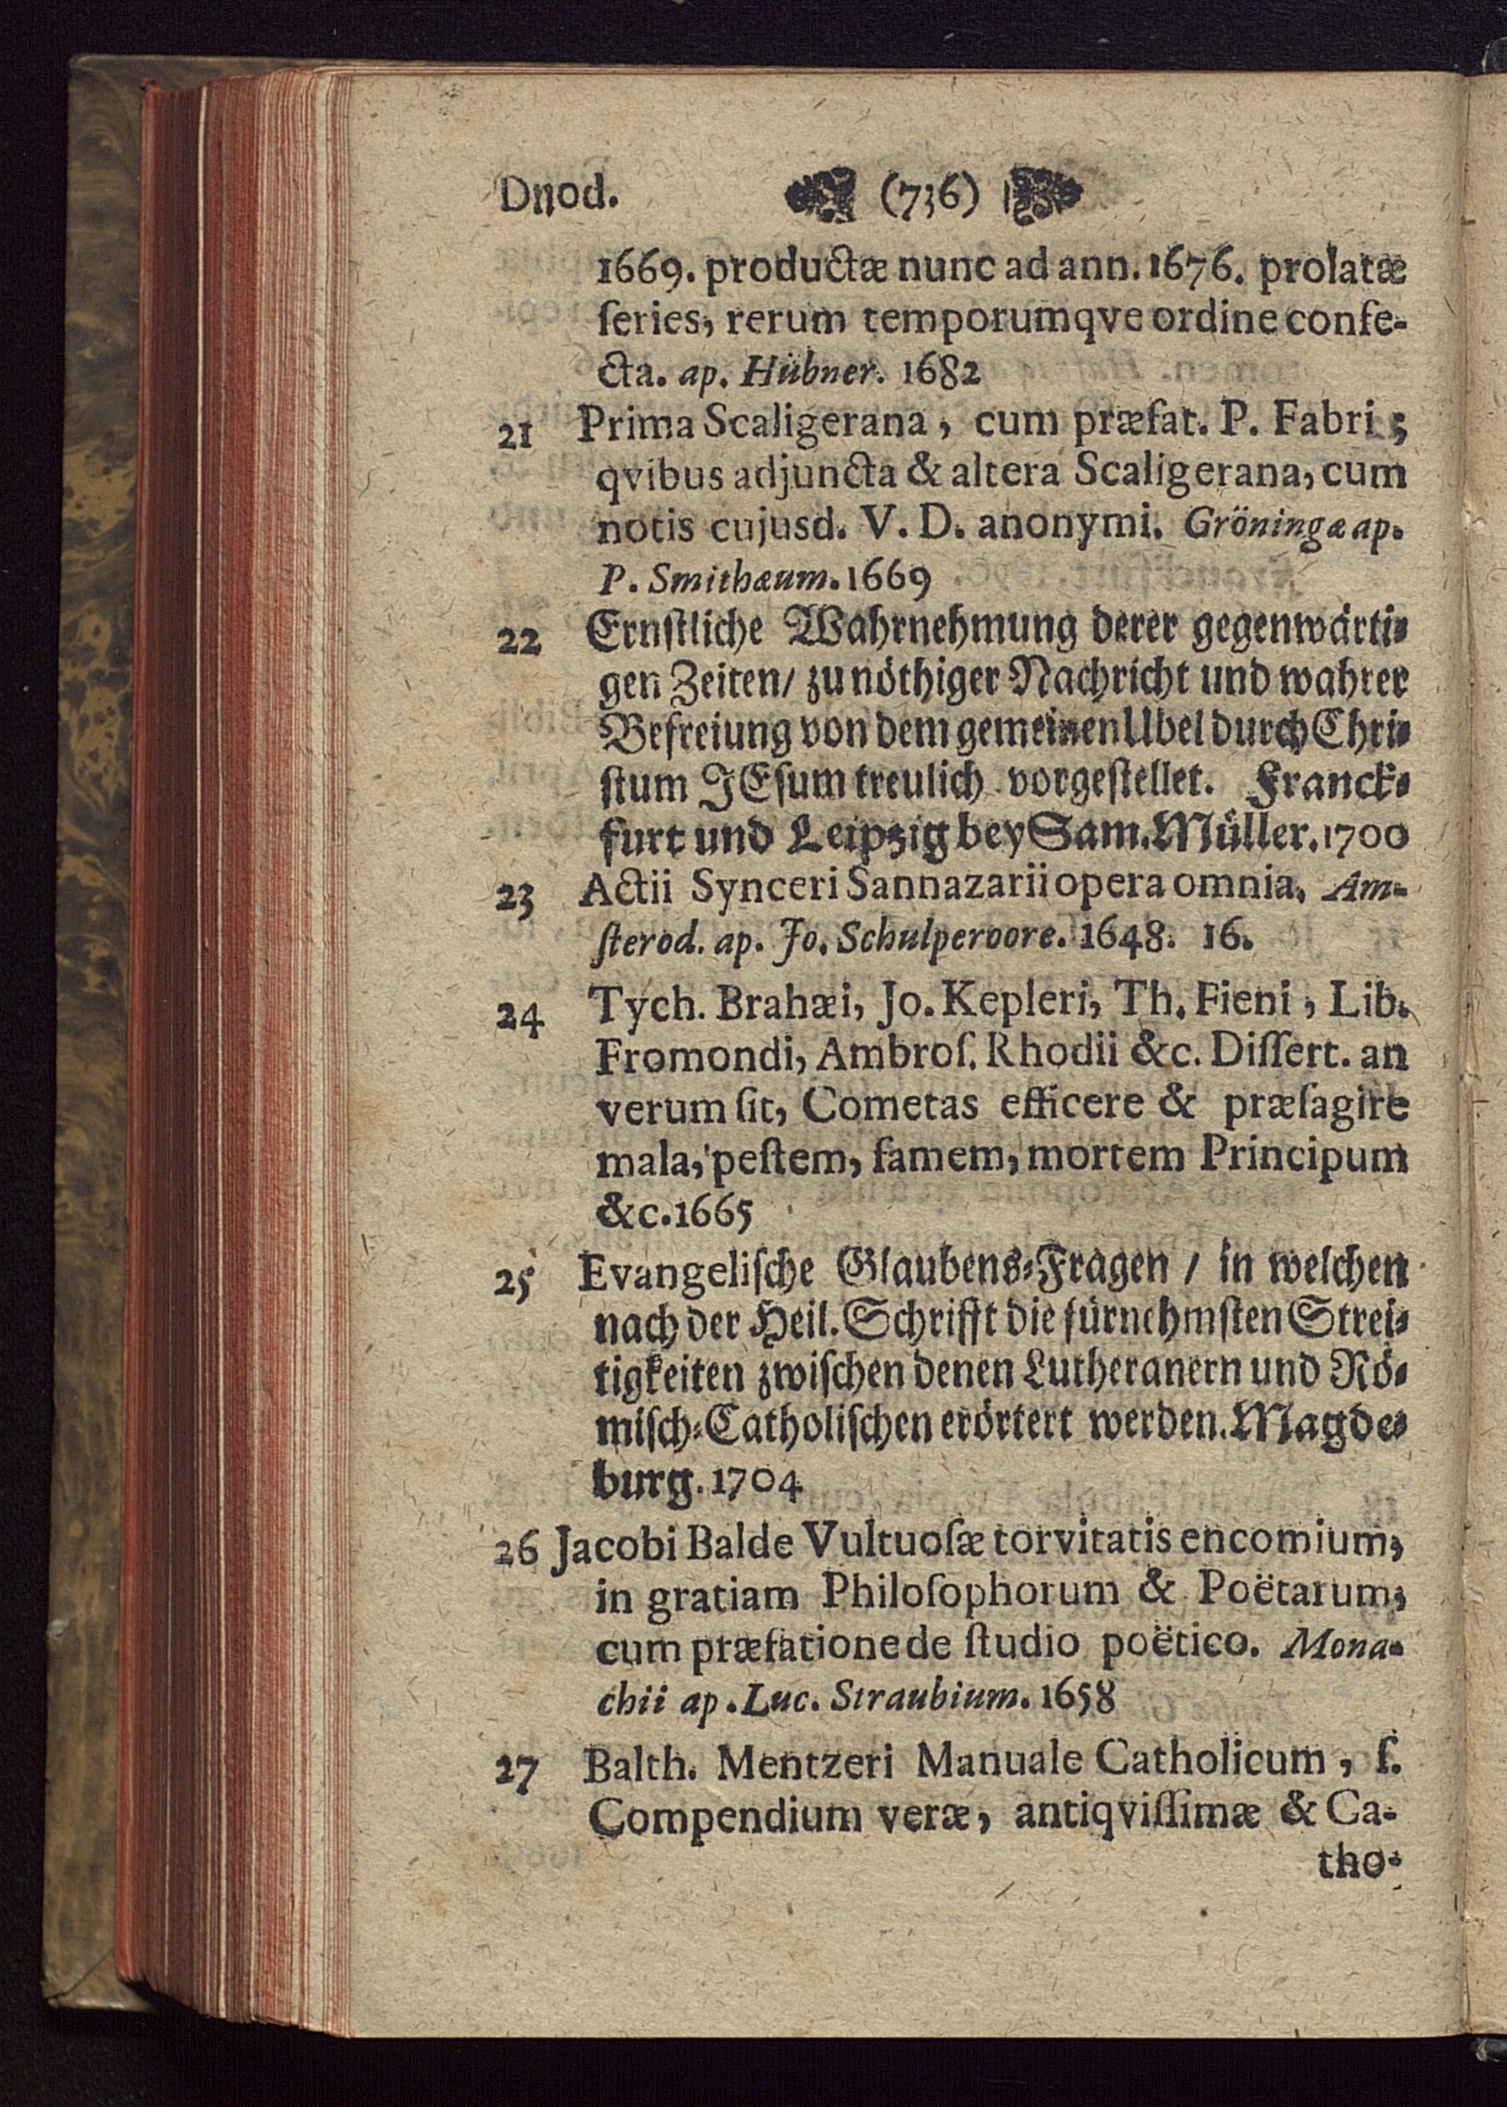 Dnod. (736)
1669. productæ nunc ad ann. 1676. prolatæ
ſeries, rerum temporumqve ordine confe-
cta. ap. Hübner. 1682
21 Prima Scaligerana, cum præfat. P. Fabri;
qvibus adjuncta & altera Scaligerana, cum
notis cujusd. V. D. anonymi. Gröningæ ap.
P. Smithæum. 1669
22 Ernſtliche Wahrnehmung derer gegenwärti-
gen Zeiten/ zu nöthiger Nachricht und wahrer
Befreiung von dem gemeinen Ubel durch Chri-
ſtum JEſum treulich vorgeſtellet. Franck-
furt und Leipzig bey Sam. Müller. 1700
23 Actii Synceri Sannazarii opera omnia. Am-
ſterod. ap. Jo. Schulperoore. 1648. 16.
24 Tych. Brahæi, Jo. Kepleri, Th. Fieni, Lib.
Fromondi, Ambroſ. Rhodii &c. Diſſert. an
verum ſit, Cometas efficere & præſagire
mala, peſtem, famem, mortem Principum
&c. 1665
25 Evangeliſche Glaubens-Fragen / in welchen
nach der Heil. Schrifft die fürnehmſten Strei-
tigkeiten zwiſchen denen Lutheranern und Rö-
miſch-Catholiſchen erörtert werden. Magde-
burg. 1704
26 Jacobi Balde Vultuoſæ torvitatis encomium,
in gratiam Philoſophorum & Poëtarum,
cum præfatione de ſtudio poëtico. Mona-
chii ap. Luc. Straubium. 1658
27 Balth. Mentzeri Manuale Catholicum, ſ.
Compendium veræ, antiqviſſimæ & Ca-
tho-